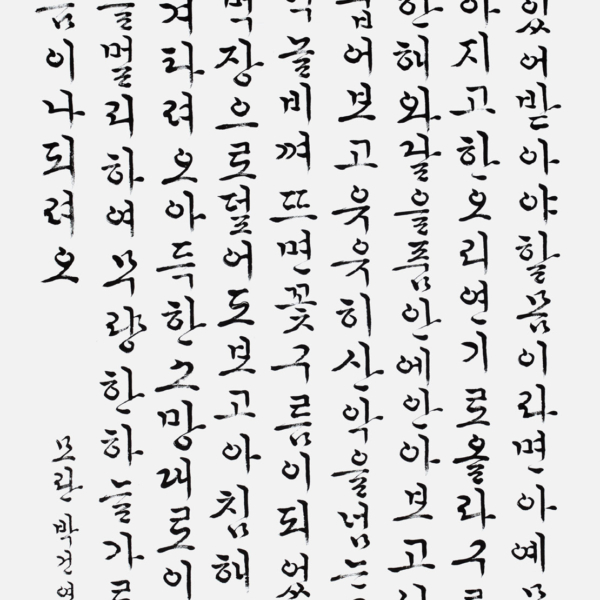 있어받아야할몸이라면아예
아지고한오리연기로올라구
한해와달을품안에안아보고
어보고웃웃히산악을넘는
놀비껴뜨면꽃구름이되었
먹장으로덮어도보고아침해
겨타려오아득한소망대로이
를멀리하여무량한하늘가
름이나되려오
모란박건영